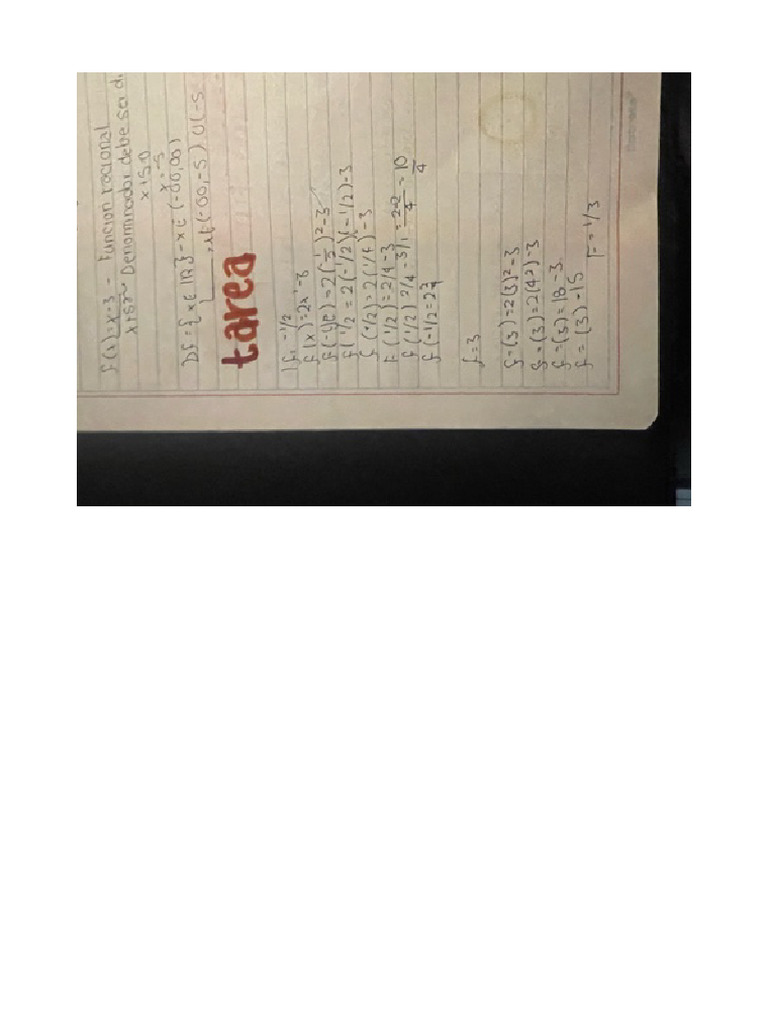 F(x)=x-3 - Funcion racional
x+5 ~ Denominador debe ser di
x+5=0
x=-5
Df={x∈IR}-x∈(-00,00)
x∈(-00,-5)U(-5
tarea
f -1/2
f(x)=2x²-3
f(-1/2)=2(1/2)²-3
f(1/2=2(-1/2)(-1/2)-3
f(1/2)=2(1/4)-3
F(1/2)=2/4-3
f(1/2)2/4-3/1=2-12/4=10/4
f(-1/2=2
f=3
f=(3)=2(3)²-3
f=(3)=2(4²)-3
f=(3)=18-3
f=(3)-15
F=-1/3